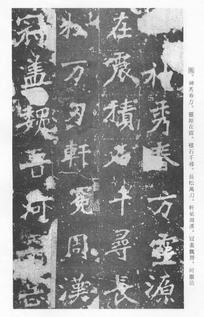 秀春方靈源
在震積石千尋長
松万刃軒冕周漢
冠蓋魏晉河靈岳
神秀春方。靈源在震。積石千尋。長松萬刃。軒冕周漢。冠蓋魏晉。河靈岳